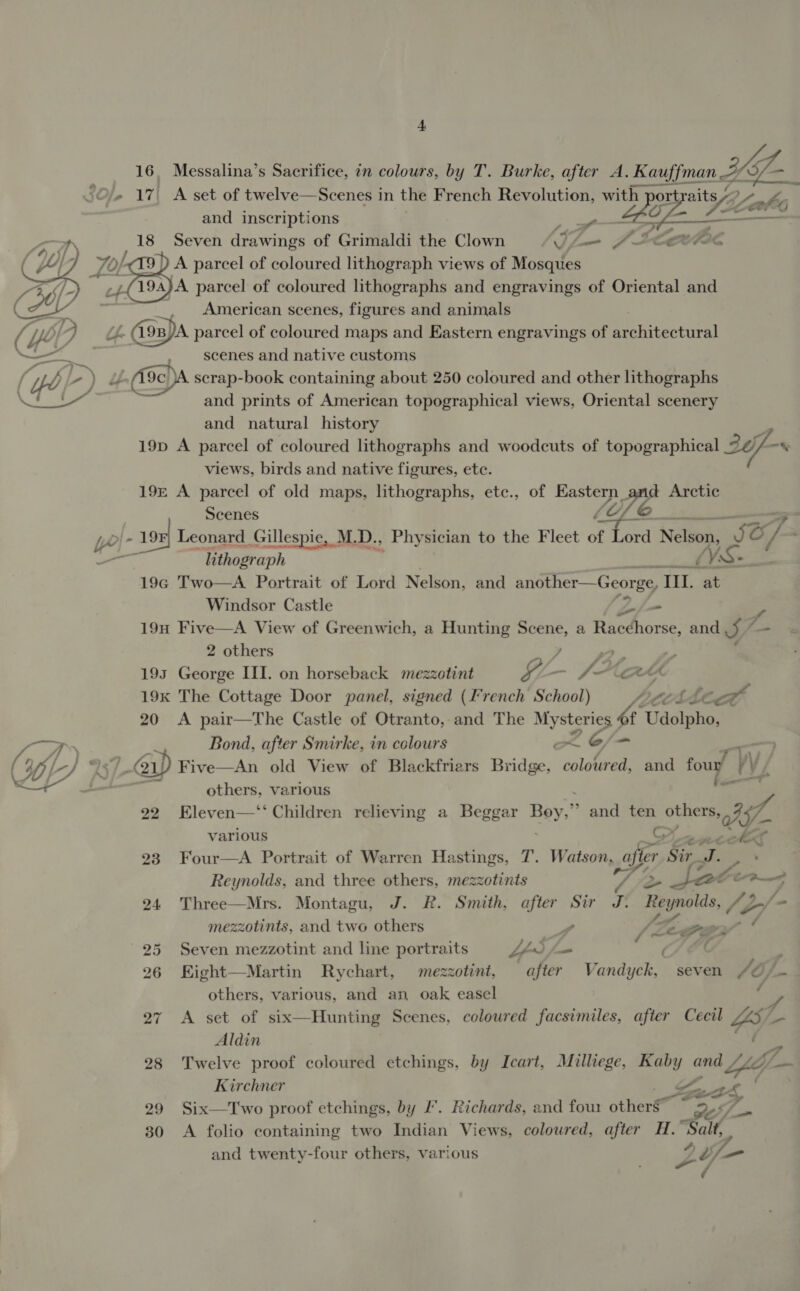 4
16. Messalina’s Sacrifice, in colours, by T. Burke, after A. Kauffman
30/- 17 A set of twelve—Scenes in the French Revolution, with portraits
and inscriptions
18 Seven drawings of Grimaldi the Clown
(40/-) 70/- 19 A parcel of coloured lithograph views of Mosques
19A A parcel of coloured lithographs and engravings of Oriental and
American scenes, figures and animals
(40/-) 19B A parcel of coloured maps and Eastern engravings of architectural
scenes and native customs
(40/-) 19C A scrap-book containing about 250 coloured and other lithographs
and prints of American topographical views, Oriental scenery
and natural history
19D A parcel of coloured lithographs and woodcuts of topographical
views, birds and native figures, etc.
19E A parcel of old maps, lithographs, etc., of Eastern and Arctic
Scenes
40/- 19F Leonard Gillespie, M.D., Physician to the Fleet of Lord Nelson,
lithograph
19G Two—A Portrait of Lord Nelson, and another—George, III. at
Windsor Castle
19H Five—A View of Greenwich, a Hunting Scene, a Racehorse, and
2 others
19J George III. on horseback mezzotint
19K The Cottage Door panel, signed (French School)
20 A pair—The Castle of Otranto, and The Mysteries of Udolpho,
Bond, after Smirke, in colours
21 Five—An old View of Blackfriars Bridge, coloured, and four
others, various
22 Eleven—“Children relieving a Beggar Boy,” and ten others,
various
23 Four—A Portrait of Warren Hastings, T. Watson, after Sir J.
Reynolds, and three others, mezzotints
24 Three—Mrs. Montagu, J. R. Smith, after Sir J. Reynolds,
mezzotints, and two others
25 Seven mezzotint and line portraits
26 Eight—Martin Rychart, mezzotint, after Vandyck, seven
others, various, and an oak easel
27 A set of six—Hunting Scenes, coloured facsimiles, after Cecil
Aldin
28 Twelve proof coloured etchings, by Icart, Milliege, Kaby and
Kirchner
29 Six—Two proof etchings, by F. Richards, and four others
30 A folio containing two Indian Views, coloured, after H. Salt,
and twenty-four others, various